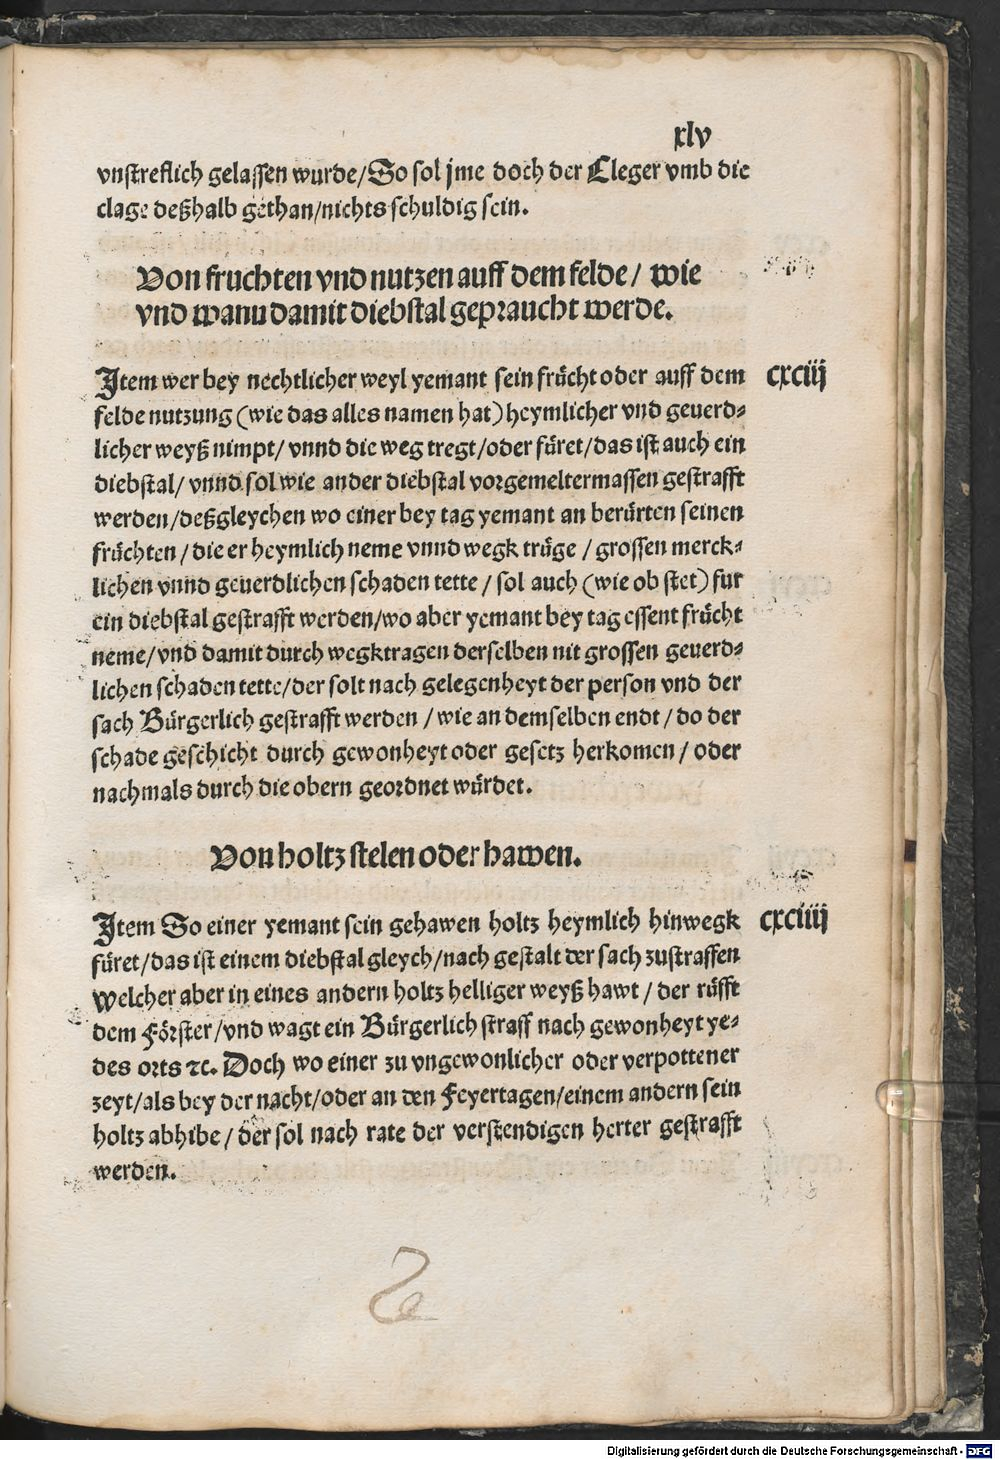 xlv
vnstreflich gelassen wurde/So sol jme doch der Cleger vmb die
clage deßhalb gethan/nichts schuldig sein.
Von fruchten vnd nutzen auff dem felde/ wie
vnd wanu damit diebstal gepraucht werde.
Item wer bey nechtlicher weyl yemant sein frücht oder auff dem
cxciij
felde nutzung (wie das alles namen hat) heymlicher vnd geuerd⸗
licher weyß nimpt/ vnnd die weg tregt/oder füret/das ist auch ein
diebstal/ vnnd sol wie ander diebstal vorgemeltermassen gestrafft
werden/deßgleychen wo einer bey tag yemant an berürten seinen
früchten/die er heymlich neme vnnd wegk trüge/grossen merck⸗
lichen vnnd geuerdlichen schaden tette/sol auch (wie ob stet) fur
ein diebstal gestrafft werden/wo aber yemant bey tag essent frücht
neme/vnd damit durch wegktragen derselben nit grossen geuerd⸗
lichen schaden tette/der solt nach gelegenheyt der person vnd der
sach Bürgerlich gestrafft werden/wie an demselben endt/do der
schade geschicht durch gewonheyt oder gesetz herkomen/oder
nachmals durch die obern geordnet würdet.
Von holtz stelen oder hawen.
Item So einer yemant sein gehawen holtz heymlich hinwegk
cxciiij
füret/das ist einem diebstal gleych/nach gestalt der sach zustraffen
Welcher aber in eines andern holtz helliger weyß hawt/der rüfft
dem Förster/vnd wagt ein Bürgerlich straff nach gewonheyt ye⸗
des orts ⁊c. Doch wo einer zu vngewonlicher oder verpottener
zeyt/als bey der nacht/oder an den Feyertagen/einem andern sein
holtz abhibe/der sol nach rate der verstendigen herter gestrafft
werden.
Digitalisierung gefördert durch die Deutsche Forschungsgemeinschaft - DFG